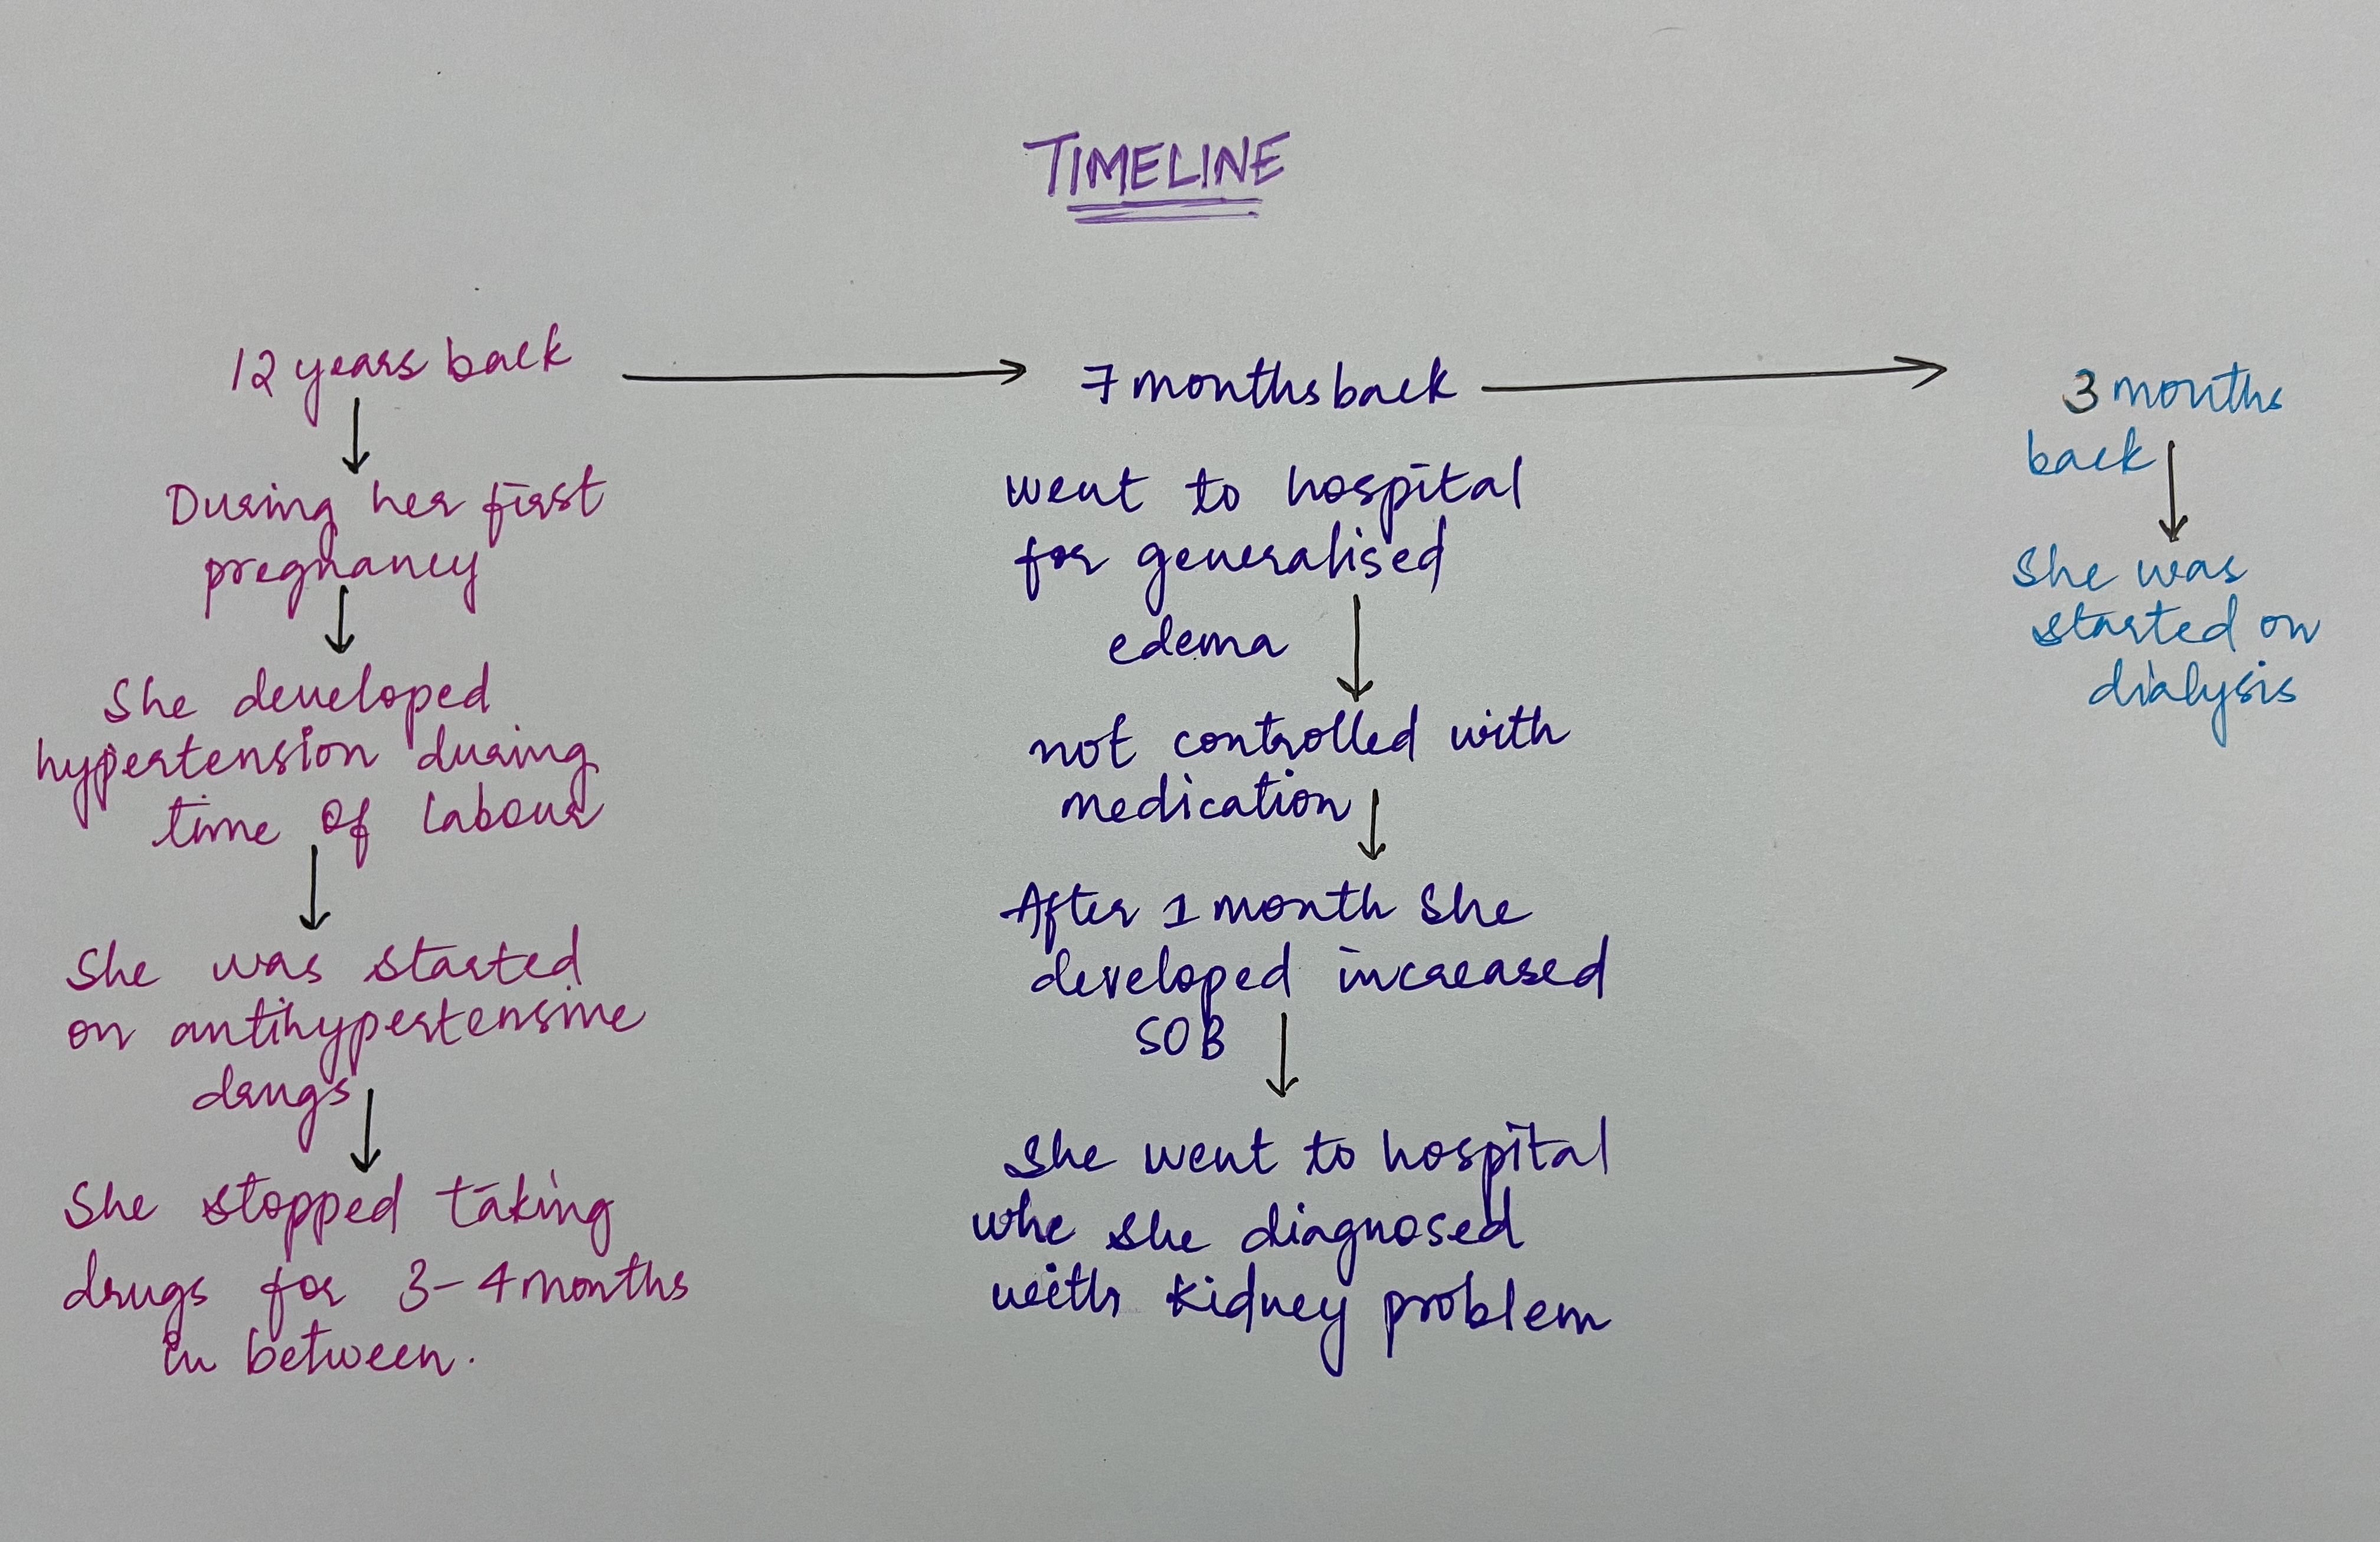 TIMELINE
12 years back
During her first
pregnancy
She developed
hypertension during
time of labour
She was started
on antihypertensive
drugs
She stopped taking
drugs for 3-4 months
in between.
7 months back
went to hospital
for generalised
edema
not controlled with
medication
After 1 month she
developed increased
SOB
She went to hospital
whe she diagnosed
with kidney problem
3 months
back
She was
started on
dialysis